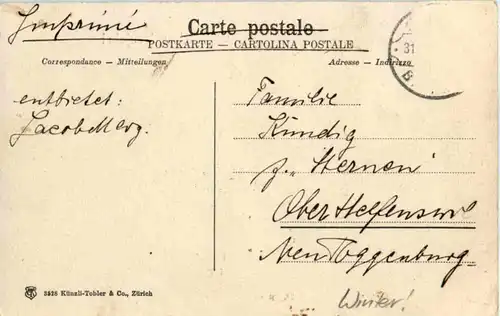 Imprimé
Carte postale
POSTKARTE – CARTOLINA POSTALE
Correspondance – Mitteilungen
Adresse – Indirizzo
31
B
entbietet:
Jacob Merz.
Familie
Kündig
z. „Sternen"
Oberhelfenswil
Neu Toggenburg
3528 Künzli-Tobler & Co., Zürich
Winter!